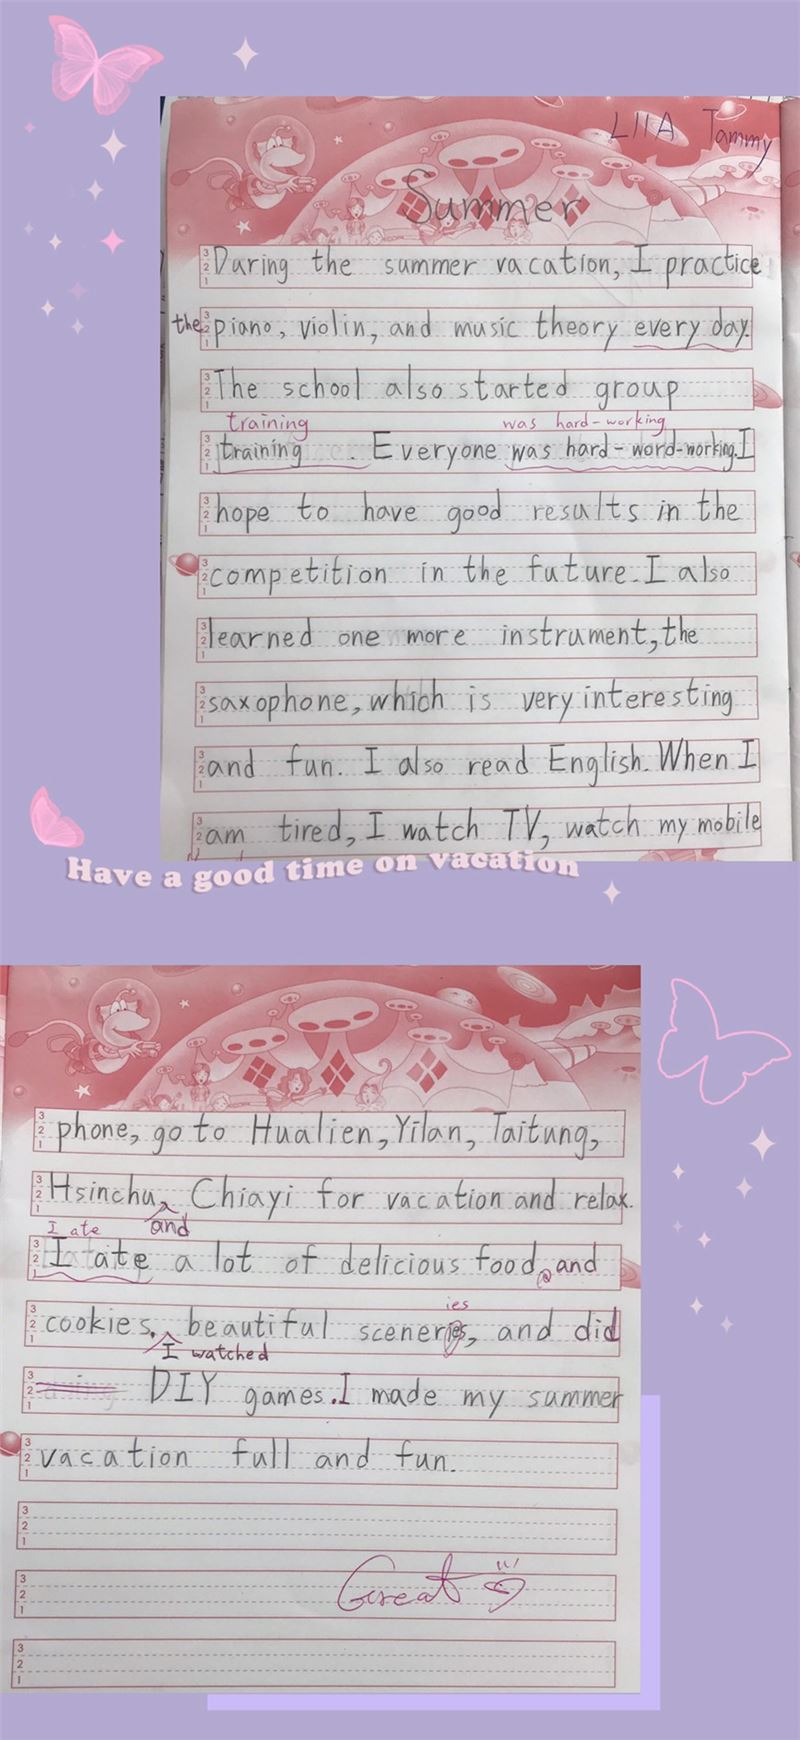 L11A Tammy
Summer
During the summer vacation, I practice
the piano, violin, and music theory every day.
The school also started group
training was hard-working
training. Everyone was hard-word-working. I
hope to have good results in the
competition in the future. I also
learned one more instrument, the
saxophone, which is very interesting
and fun. I also read English. When I
am tired, I watch TV, watch my mobile
Have a good time on vacation
phone, go to Hualien, Yilan, Taitung,
Hsinchu, Chiayi for vacation and relax.
I ate and
I ate a lot of delicious food and
ies
cookies. beautiful sceneries, and did
I watched
DIY games. I made my summer
vacation full and fun.
Great